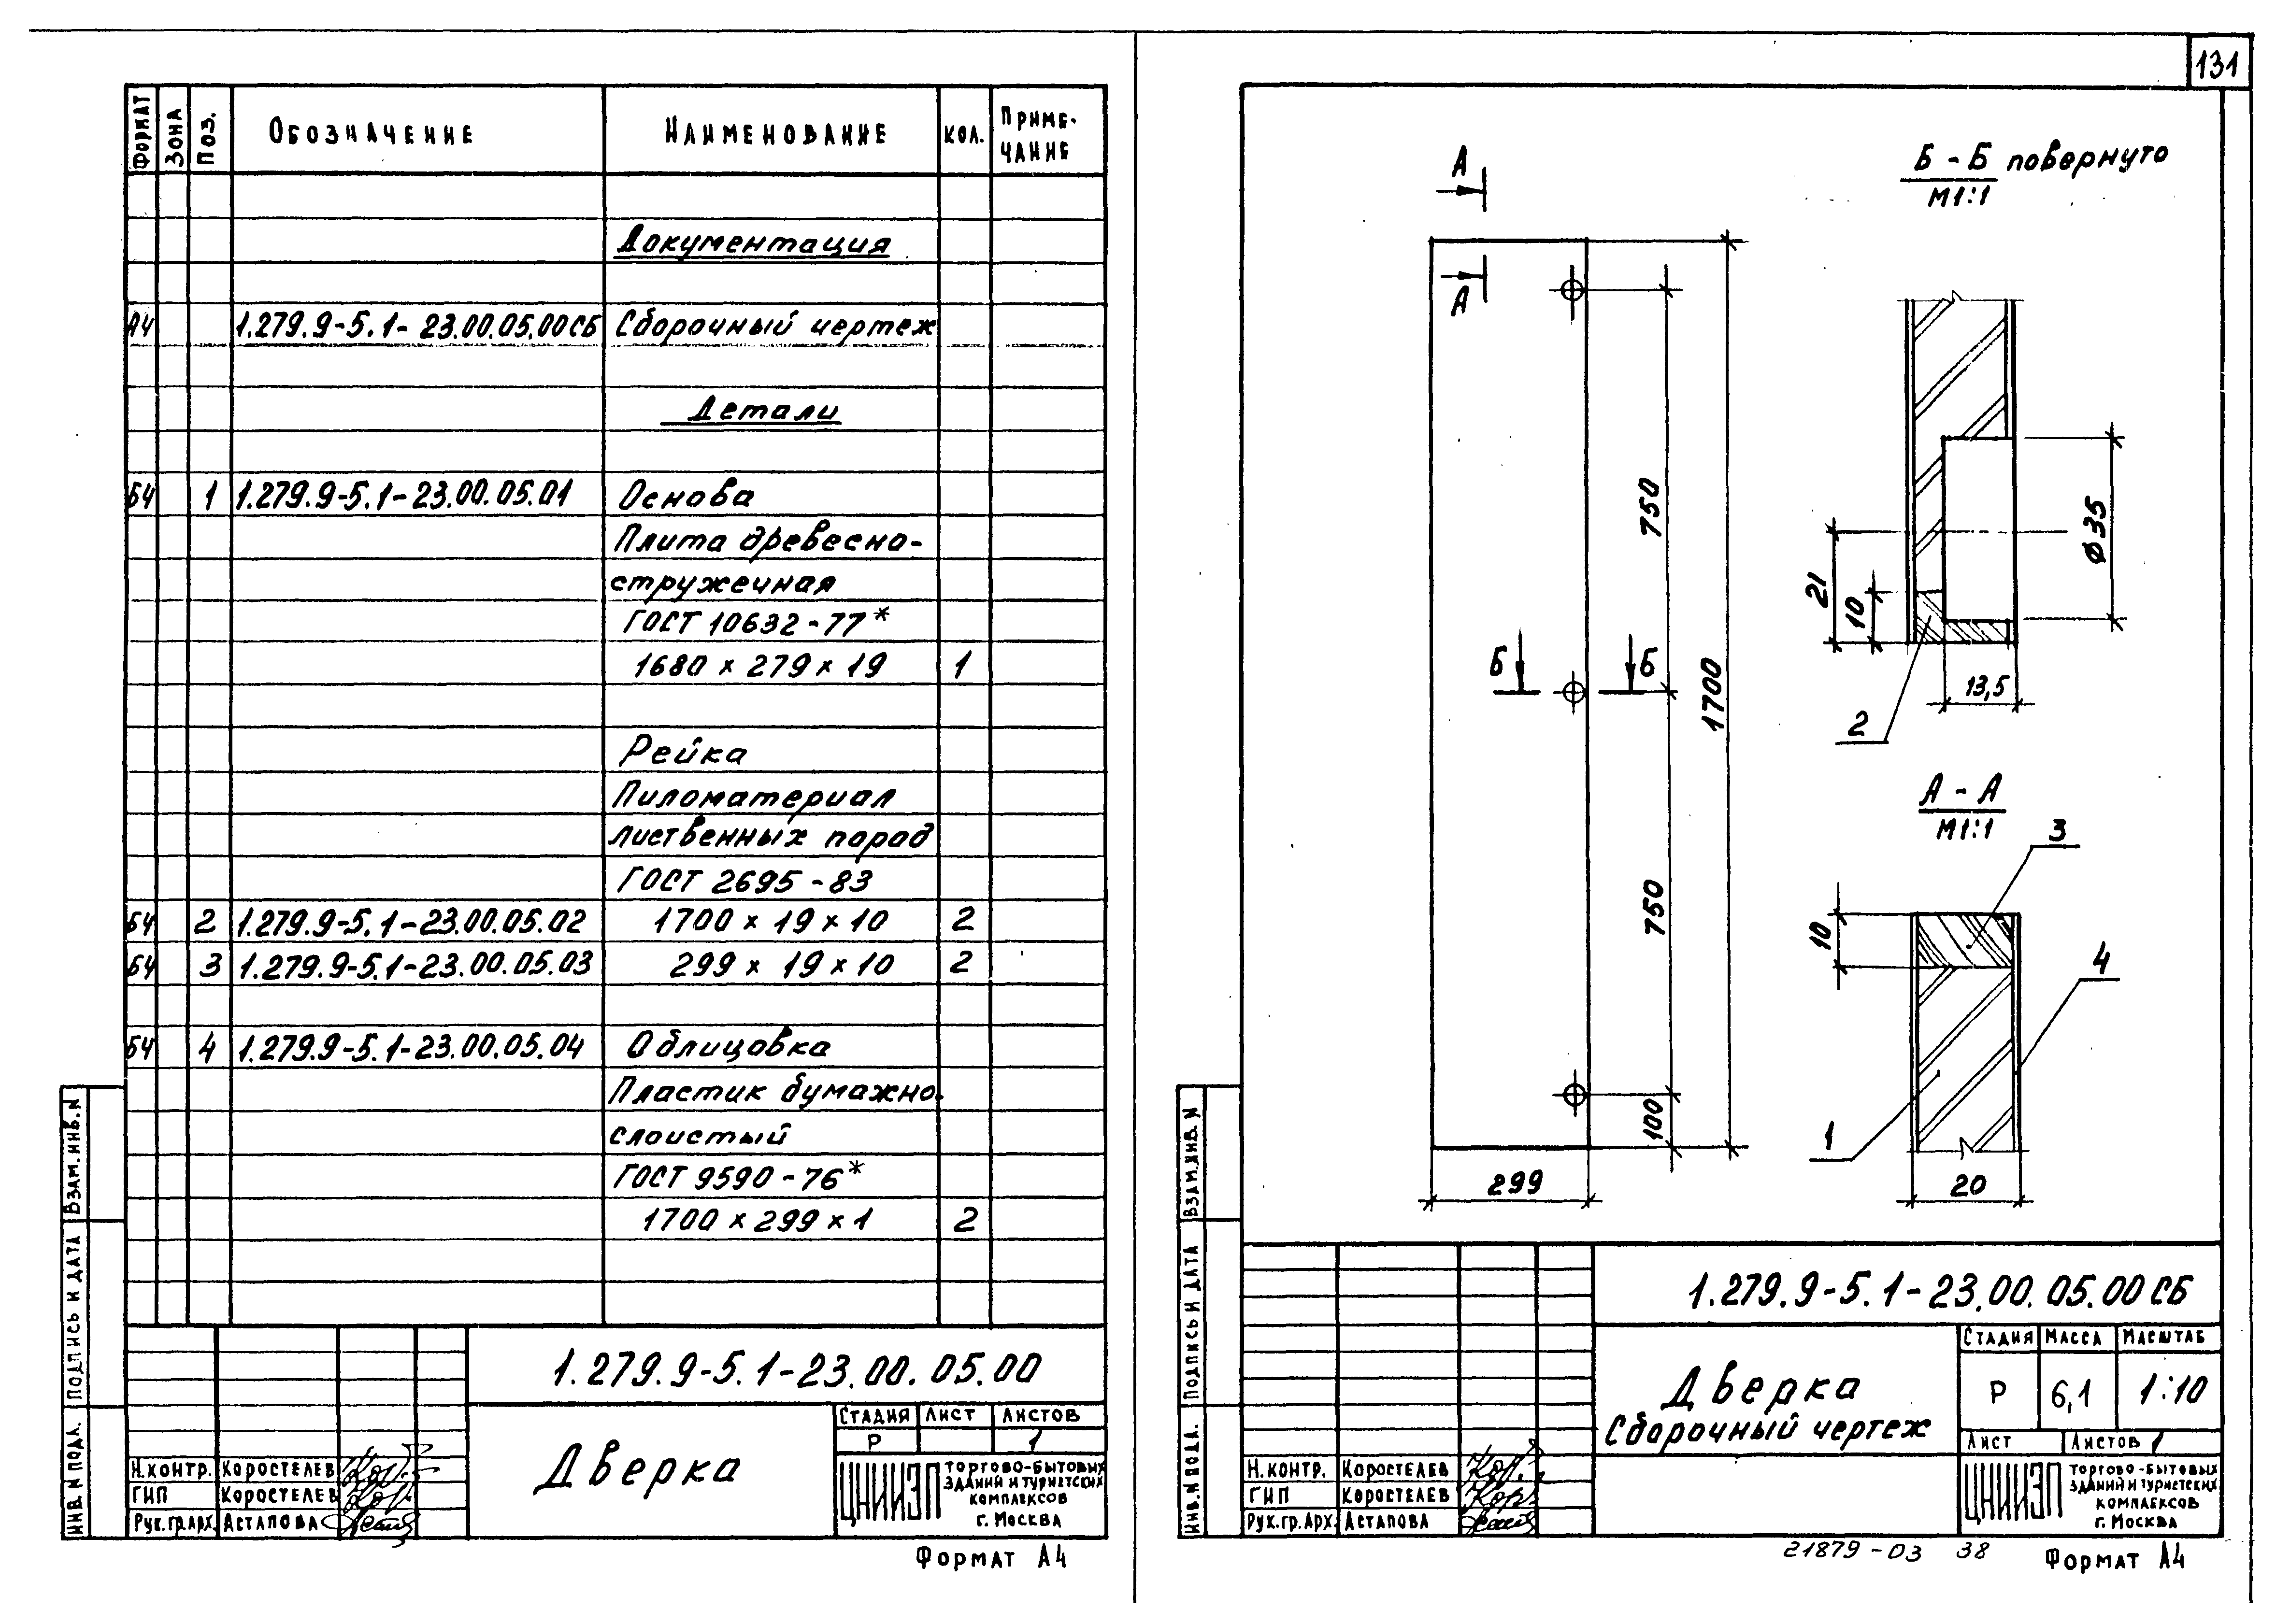 131
ФОРМАТ ЗОНА ПОЗ. ОБОЗНАЧЕНИЕ НАИМЕНОВАНИЕ КОЛ. ПРИМЕ-
ЧАНИЕ
Документация
А4 1.279.9-5.1-23.00.05.00СБ Сборочный чертеж
Детали
Б4 1 1.279.9-5.1-23.00.05.01 Основа
Плита древесно-
стружечная
ГОСТ 10632-77*
1680 × 279 × 19 1
Рейка
Пиломатериал
лиственных пород
ГОСТ 2695-83
Б4 2 1.279.9-5.1-23.00.05.02 1700 × 19 × 10 2
Б4 3 1.279.9-5.1-23.00.05.03 299 × 19 × 10 2
Б4 4 1.279.9-5.1-23.00.05.04 Облицовка
Пластик бумажно-
слоистый
ГОСТ 9590-76*
1700 × 299 × 1 2
ВЗАМ.ИНВ.N
ПОДПИСЬ И ДАТА
ИНВ.N ПОДЛ.
1.279.9-5.1-23.00.05.00
Дверка
СТАДИЯ ЛИСТ ЛИСТОВ
Р 1
Н.КОНТР. КОРОСТЕЛЕВ
ГИП КОРОСТЕЛЕВ
РУК.ГР.АРХ. АСТАПОВА
ЦНИИЭП ТОРГОВО-БЫТОВЫХ
ЗДАНИЙ И ТУРИСТСКИХ
КОМПЛЕКСОВ
Г. МОСКВА
ФОРМАТ А4
А
А
Б Б
750
750
100
1700
299
Б - Б повернуто
М1:1
Ø35
21
10
13,5
2
А - А
М1:1
3
10
4
1
20
ВЗАМ.ИНВ.N
ПОДПИСЬ И ДАТА
ИНВ.N ПОДЛ.
1.279.9-5.1-23.00.05.00СБ
Дверка
Сборочный чертеж
СТАДИЯ МАССА МАСШТАБ
Р 6,1 1:10
ЛИСТ ЛИСТОВ 1
Н.КОНТР. КОРОСТЕЛЕВ
ГИП КОРОСТЕЛЕВ
РУК.ГР.АРХ. АСТАПОВА
ЦНИИЭП ТОРГОВО-БЫТОВЫХ
ЗДАНИЙ И ТУРИСТСКИХ
КОМПЛЕКСОВ
Г. МОСКВА
21879-03 38 ФОРМАТ А4